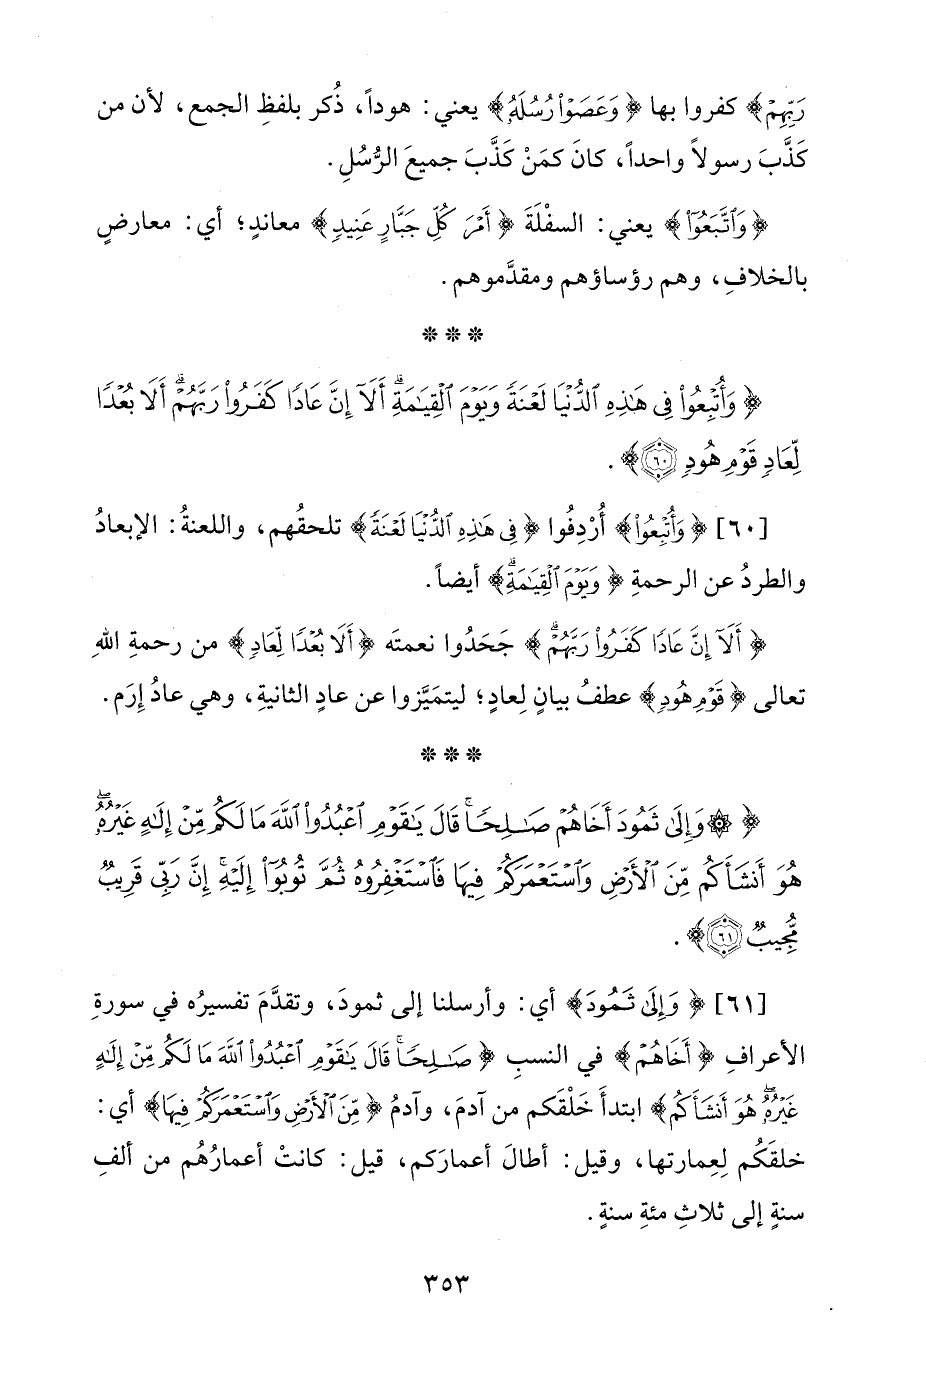 رَبِّهِمْ﴾ كفروا بها ﴿وَعَصَوْا۟ رُسُلَهُۥ﴾ يعني: هوداً، ذُكر بلفظِ الجمع، لأن من
كَذَّبَ رسولاً واحداً، كانَ كمَنْ كَذَّبَ جميعَ الرُّسُلِ.
﴿وَٱتَّبَعُوٓا۟﴾ يعني: السفْلَةَ ﴿أَمْرَ كُلِّ جَبَّارٍ عَنِيدٍ﴾ معاندٍ؛ أي: معارضٍ
بالخلافِ، وهم رؤساؤهم ومقدَّموهم.
* * *
﴿وَأُتْبِعُوا۟ فِى هَـٰذِهِ ٱلدُّنْيَا لَعْنَةً وَيَوْمَ ٱلْقِيَـٰمَةِ ۗ أَلَآ إِنَّ عَادًا كَفَرُوا۟ رَبَّهُمْ ۗ أَلَا بُعْدًا
لِّعَادٍ قَوْمِ هُودٍ ٦٠﴾.
[٦٠] ﴿وَأُتْبِعُوا۟﴾ أُرْدِفُوا ﴿فِى هَـٰذِهِ ٱلدُّنْيَا لَعْنَةً﴾ تلحقُهم، واللعنةُ: الإبعادُ
والطردُ عن الرحمةِ ﴿وَيَوْمَ ٱلْقِيَـٰمَةِ ۗ﴾ أيضاً.
﴿أَلَآ إِنَّ عَادًا كَفَرُوا۟ رَبَّهُمْ ۗ﴾ جَحَدُوا نعمتَه ﴿أَلَا بُعْدًا لِّعَادٍ﴾ من رحمةِ اللهِ
تعالى ﴿قَوْمِ هُودٍ﴾ عطفُ بيانٍ لِعادٍ؛ ليتمَيَّزوا عن عادٍ الثانيةِ، وهي عادُ إرَم.
* * *
﴿۞ وَإِلَىٰ ثَمُودَ أَخَاهُمْ صَـٰلِحًا ۚ قَالَ يَـٰقَوْمِ ٱعْبُدُوا۟ ٱللَّهَ مَا لَكُم مِّنْ إِلَـٰهٍ غَيْرُهُۥ ۖ
هُوَ أَنشَأَكُم مِّنَ ٱلْأَرْضِ وَٱسْتَعْمَرَكُمْ فِيهَا فَٱسْتَغْفِرُوهُ ثُمَّ تُوبُوٓا۟ إِلَيْهِ ۚ إِنَّ رَبِّى قَرِيبٌ
مُّجِيبٌ ٦١﴾.
[٦١] ﴿وَإِلَىٰ ثَمُودَ﴾ أي: وأرسلنا إلى ثمودَ، وتقدَّمَ تفسيرُه في سورةِ
الأعرافِ ﴿أَخَاهُمْ﴾ في النسبِ ﴿صَـٰلِحًا ۚ قَالَ يَـٰقَوْمِ ٱعْبُدُوا۟ ٱللَّهَ مَا لَكُم مِّنْ إِلَـٰهٍ
غَيْرُهُۥ ۖ هُوَ أَنشَأَكُم﴾ ابتدأَ خَلْقَكم من آدمَ، وآدمُ ﴿مِّنَ ٱلْأَرْضِ وَٱسْتَعْمَرَكُمْ فِيهَا﴾ أي:
خلقَكُم لِعِمارتها، وقيل: أطالَ أعمارَكم، قيل: كانتْ أعمارُهُم من ألفِ
سنةٍ إلى ثلاثِ مئةِ سنةٍ.
٣٥٣